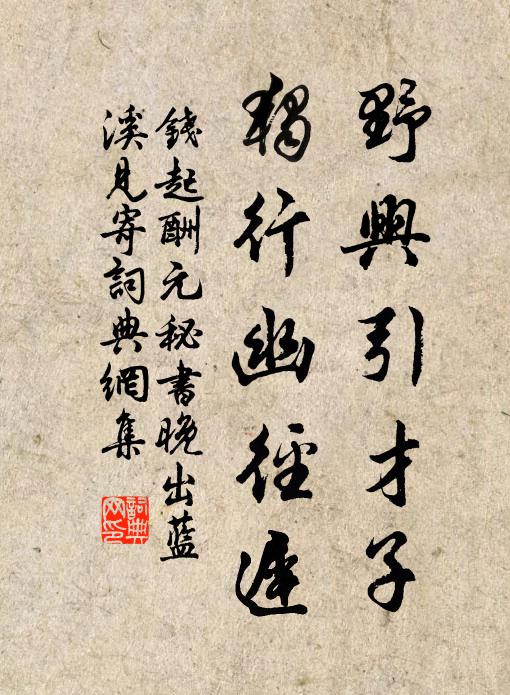 野興引才子
獨行幽徑遲
錢起酬元秘書晚出藍
溪見寄詞典網集
詞典
网印